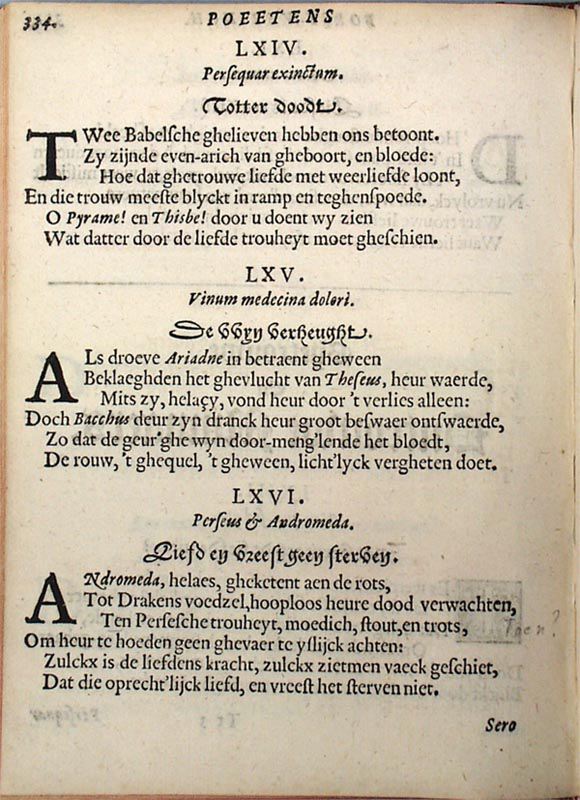 334.
POEETENS
LXIV.
Persequar exinctum.
Totter doodt.
TWee Babelsche ghelieven hebben ons betoont.
Zy zijnde even-arich van gheboort, en bloede:
Hoe dat ghetrouwe liefde met weerliefde loont,
En die trouw meeste blyckt in ramp en teghenspoede.
O Pyrame! en Thisbe! door u doent wy zien
Wat datter door de liefde trouheyt moet gheschien.
LXV.
Vinum medecina dolori.
De Wyn verheught.
ALs droeve Ariadne in betraent gheween
Beklaeghden het ghevlucht van Theseus, heur waerde,
Mits zy, helaçy, vond heur door 't verlies alleen:
Doch Bacchus deur zyn dranck heur groot beswaer ontswaerde,
Zo dat de geur'ghe wyn door-meng'lende het bloedt,
De rouw, 't ghequel, 't gheween, licht'lyck vergheten doet.
LXVI.
Perseus & Andromeda.
Liefd en vreest geen sterven.
ANdromeda, helaes, gheketent aen de rots,
Tot Drakens voedzel, hooploos heure dood verwachten,
Ten Persesche trouheyt, moedich, stout, en trots,
Toen?
Om heur te hoeden geen ghevaer te yslijck achten:
Zulckx is de liefdens kracht, zulckx zietmen vaeck geschiet,
Dat die oprecht'lijck liefd, en vreest het sterven niet.
Sero